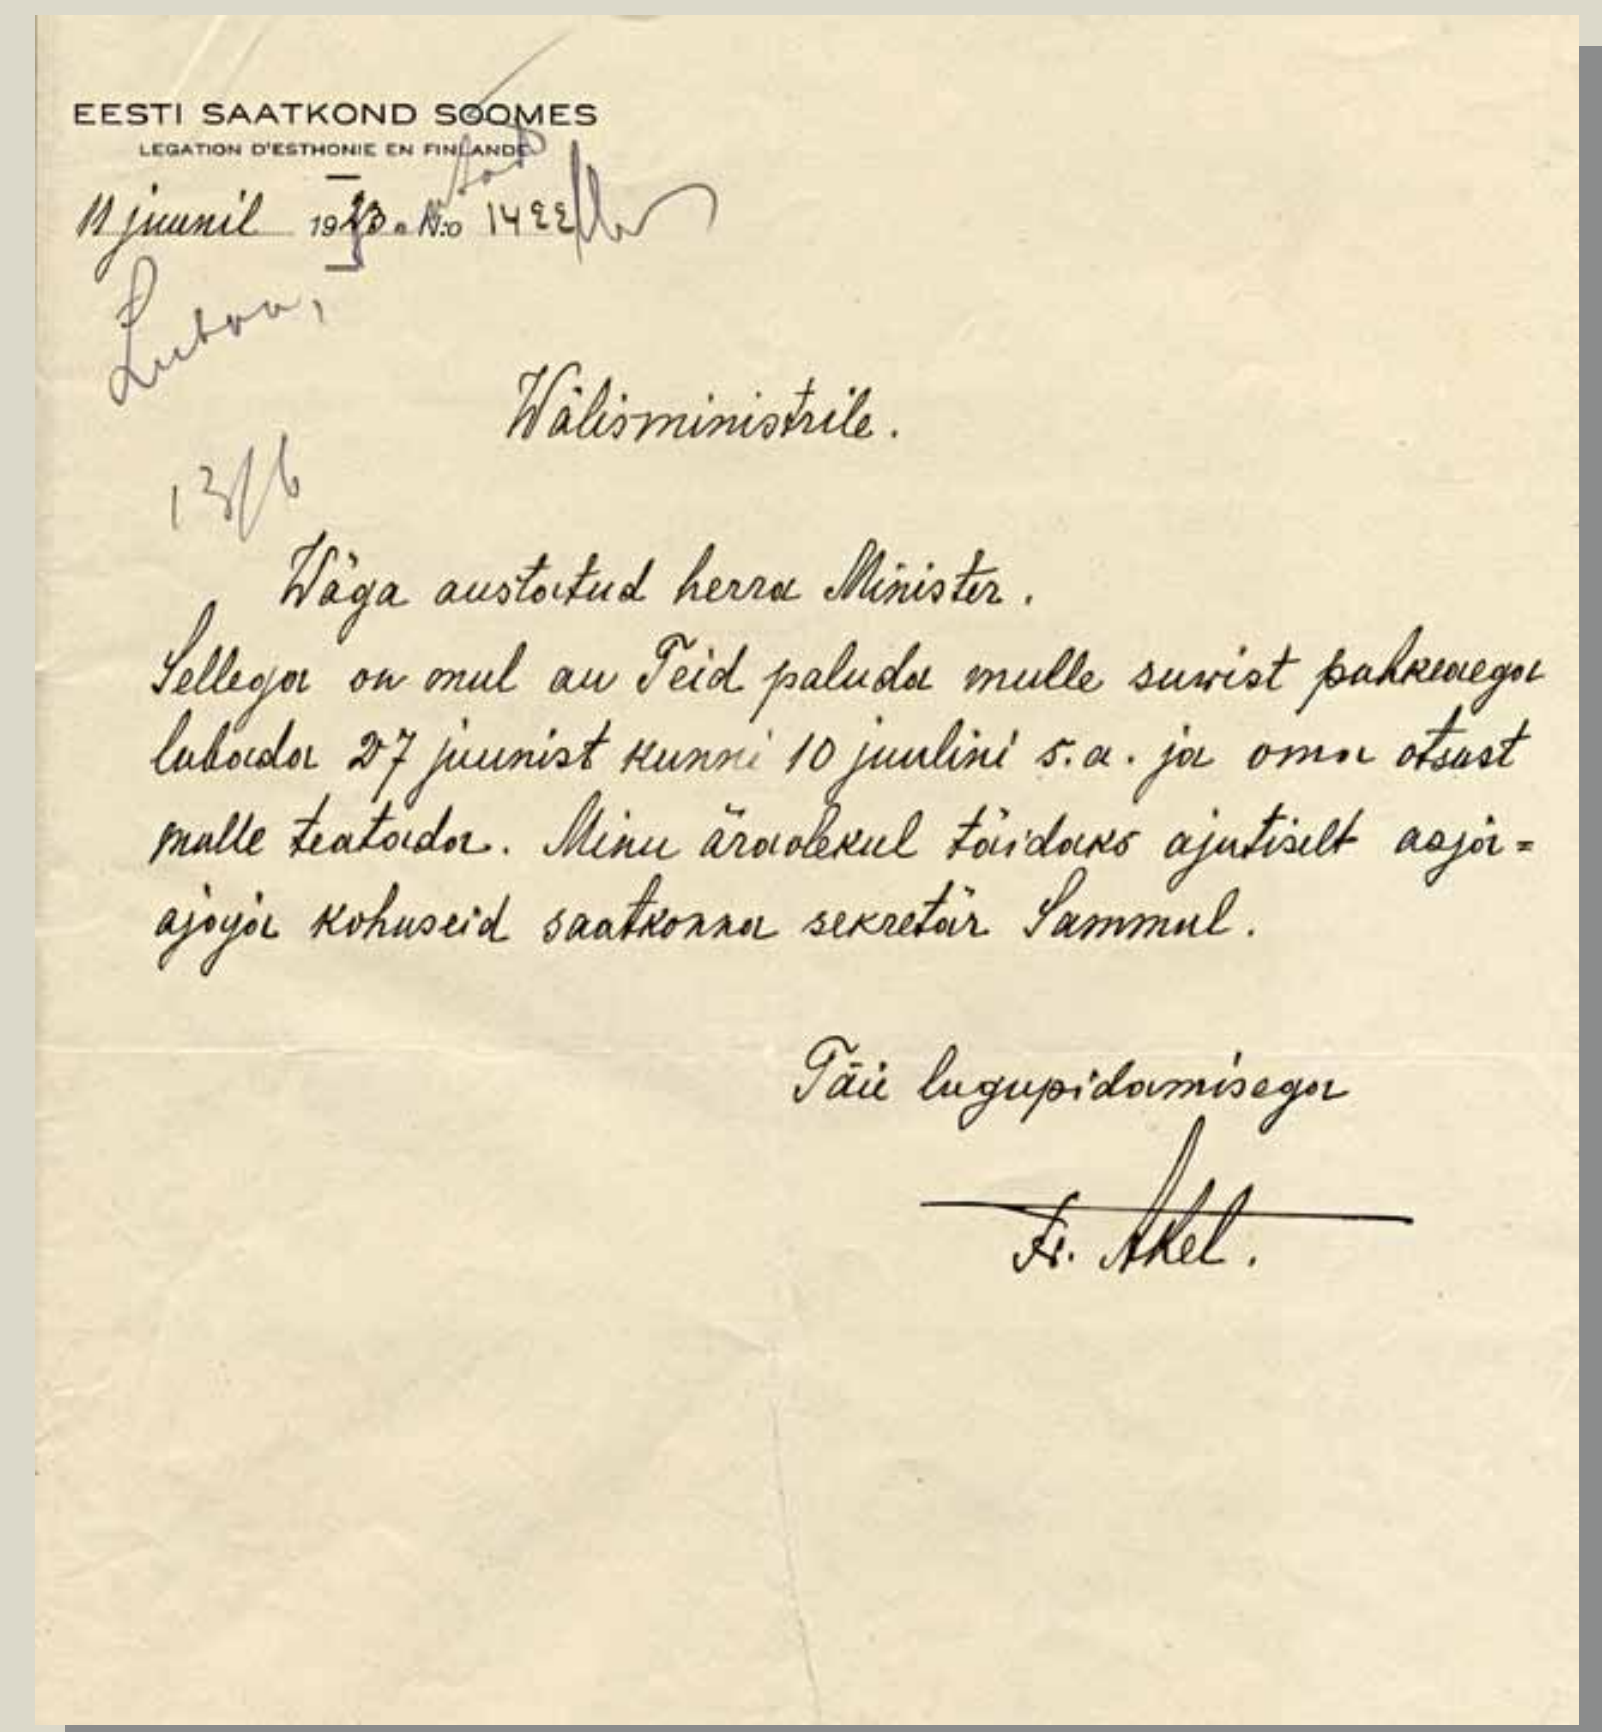 EESTI SAATKOND SOOMES
LEGATION D'ESTHONIE EN FINLANDE
11 juunil 1923. No 1422
Luban,
Wälisministrile.
13/6
Wäga austatud herra Minister.
Sellega on mul au Teid paluda mulle suwist puhkeaega
lubada 27 juunist kunni 10 juulini s.a. ja oma otsust
mulle teatada. Minu äraolekul täidaks ajutiselt asja=
ajaja kohuseid saatkonna sekretär Sammul.
Täie lugupidamisega
Fr. Akel.